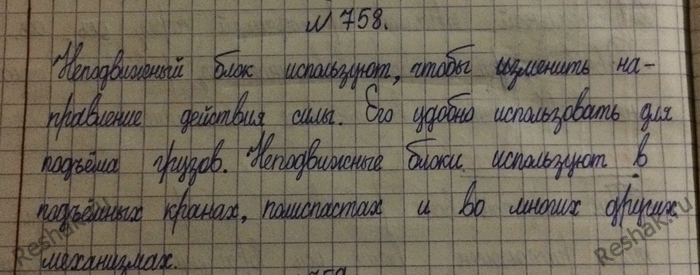 №758.
Неподвижный блок используют, чтобы изменить на-
правление действия силы. Его удобно использовать для
подъёма грузов. Неподвижные блоки используют в
подъёмных кранах, полиспастах и во многих других
механизмах.
759
Reshak.ru
Reshak.ru